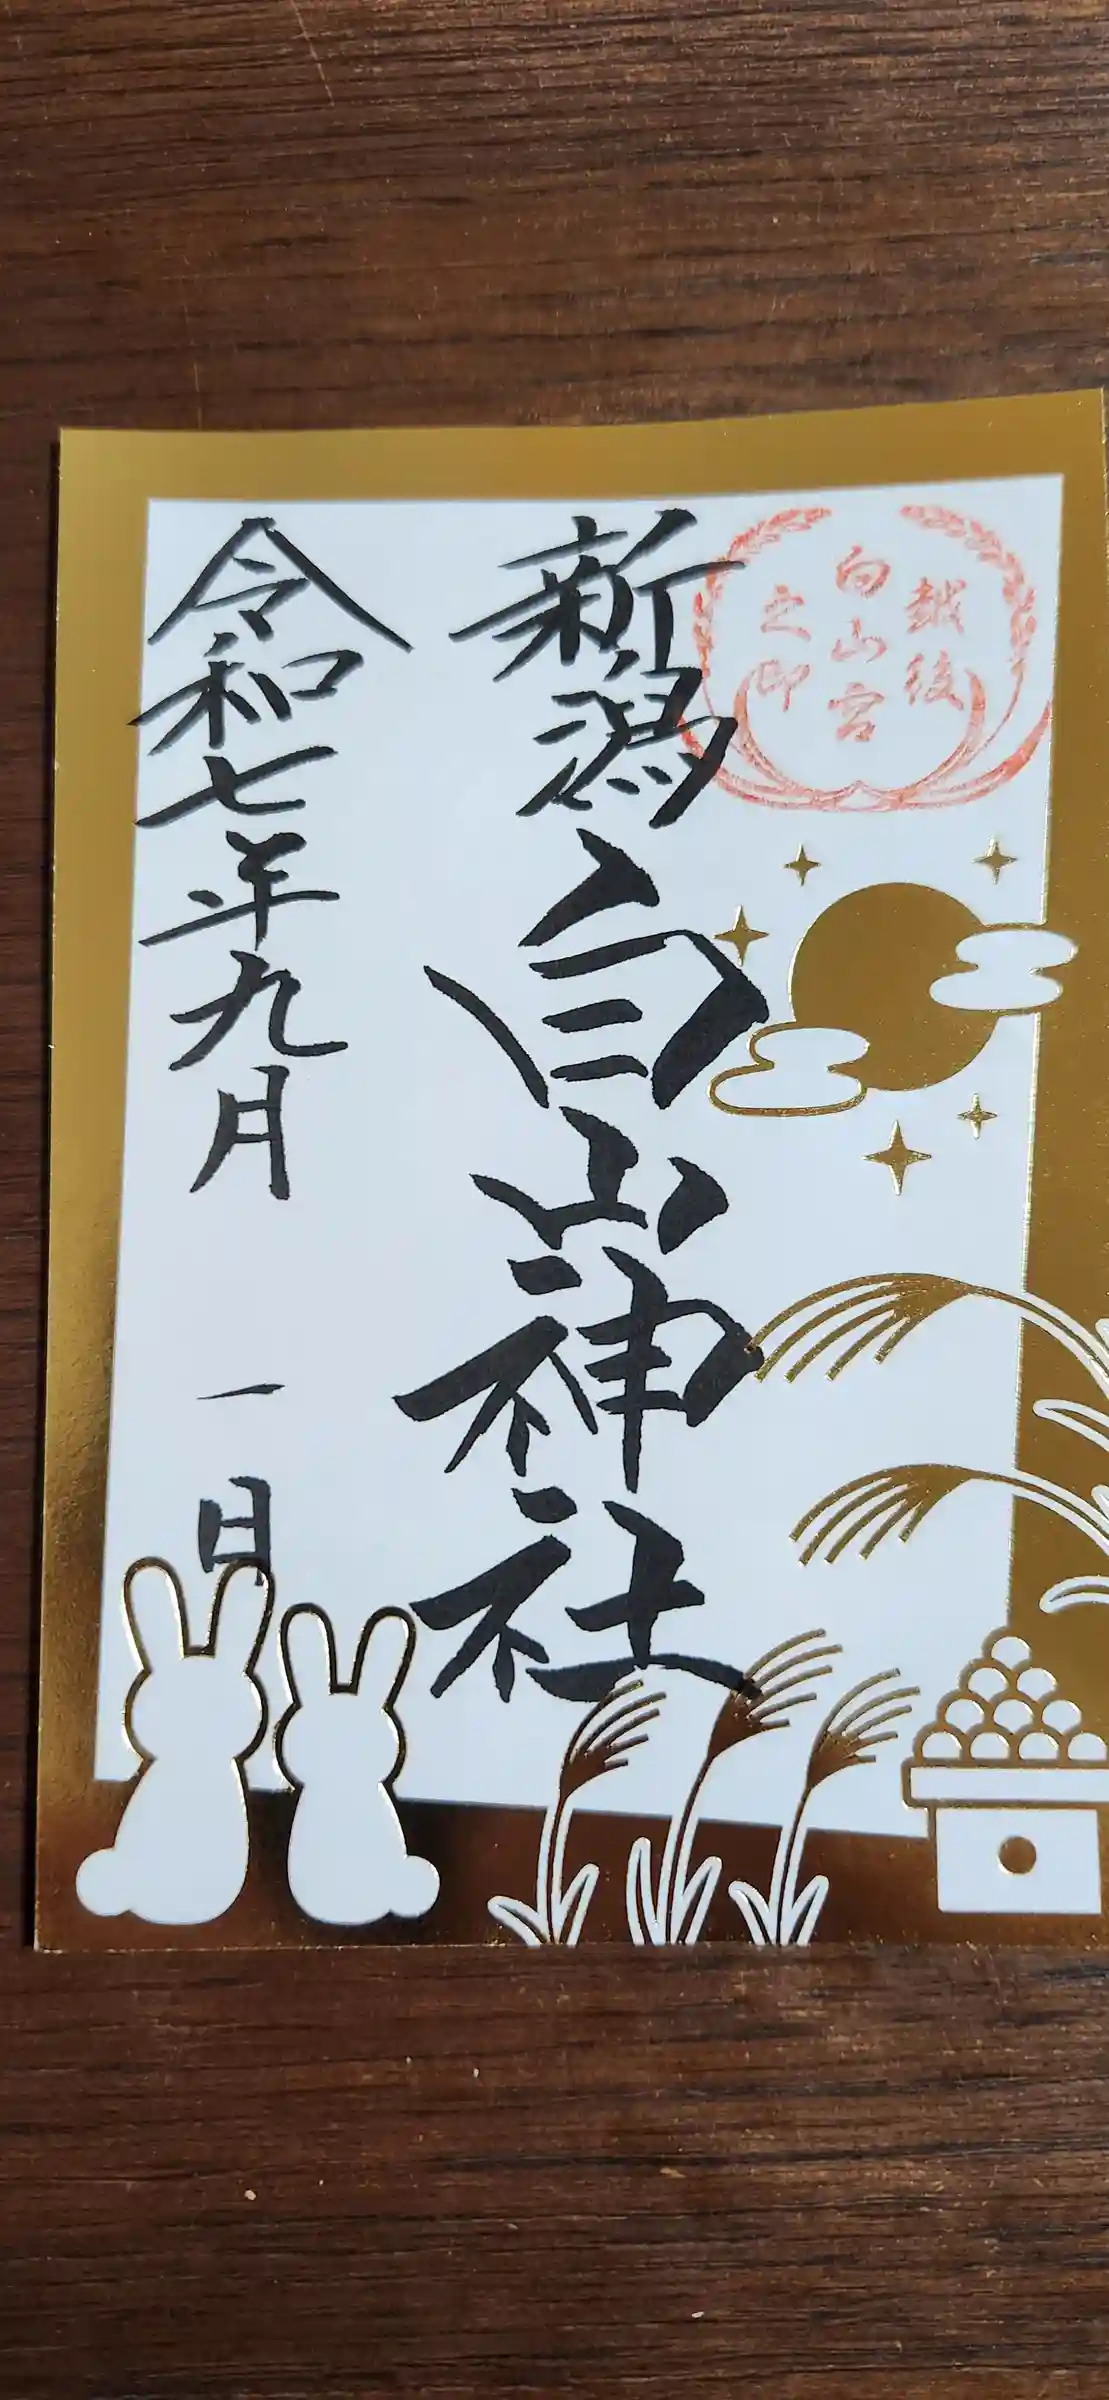 越後
白山宮
之印
新潟白山神社
令和七年九月一日